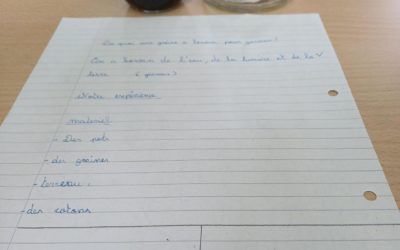 De quoi une graine a besoin pour germer ?
On a besoin de l'eau, de la lumière et de la
terre (germer)
Notre expérience
materiel
- Des pots
- des graines
- terreau.
- des cotons